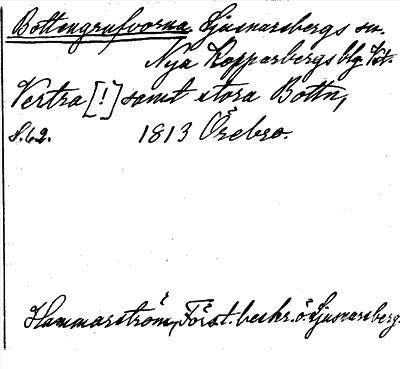 Bottengrufvorna Ljusnarsbergs sn.
Nya Kopparbergs blg Vst.
Vertra [!] samt stora Bottn,
s. 62. 1813 Örebro.
Hammarström, Förs. t. beskr. ö. Ljusnarsberg.